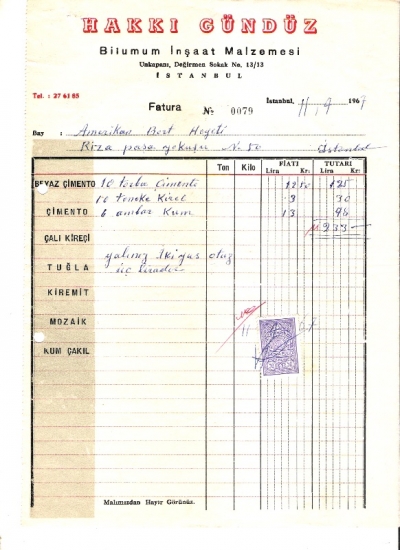 HAKKI GÜNDÜZ
Bilumum İnşaat Malzemesi
Unkapanı, Değirmen Sokak No. 13/13
İSTANBUL
Tel. : 27 61 85
Fatura № 0079 İstanbul, 11 / 9 / 1967
Bay : Amerikan Bort Heyeti
Riza paşa yokuşu No. 50 İstanbul
Ton Kilo FİATI Lira Kr: TUTARI Lira Kr:
BEYAZ ÇİMENTO 10 torba Çimento 12 50 125
10 teneke Kireç 3 30
ÇİMENTO 6 ambar Kum 13 78
233
ÇALI KİREÇİ
yalınız İki yüs otuz
TUĞLA üç liradır
KİREMİT
MOZAİK
11 67
KUM ÇAKIL
Malımızdan Hayır Görünüz.